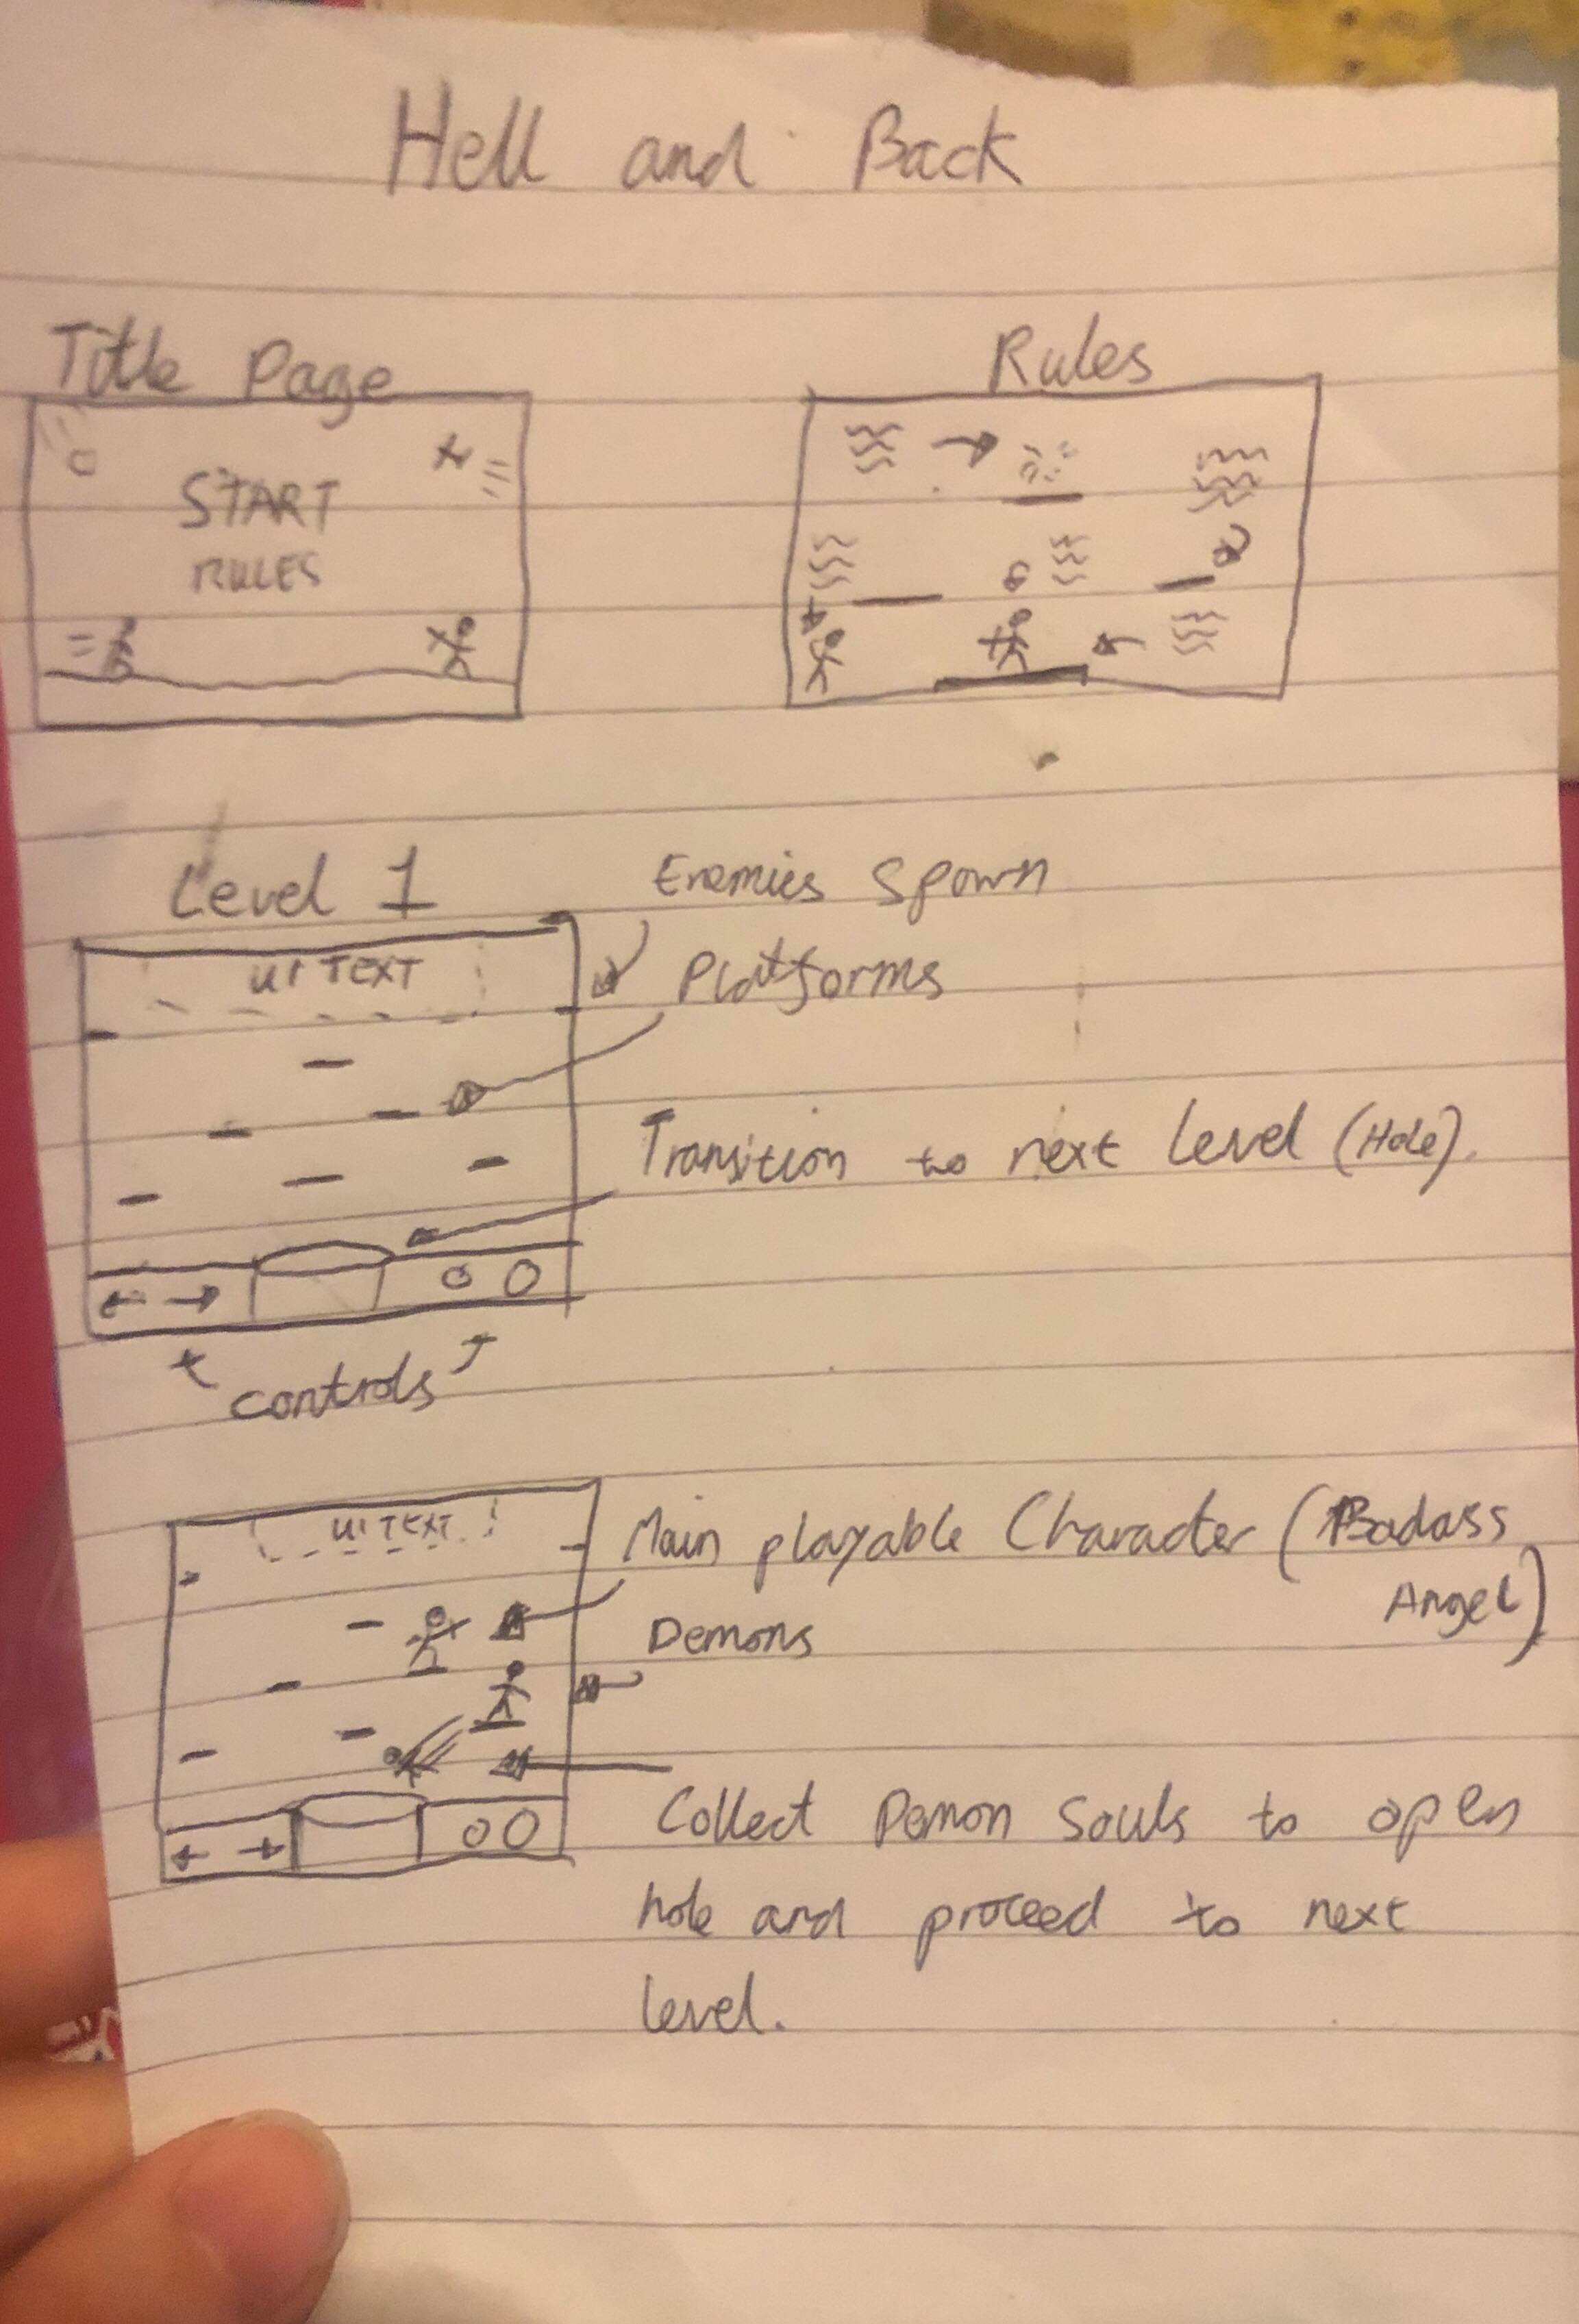 Hell and Back
Title Page
Rules
START
RULES
Level 1
Enemies Spawn
UI TEXT
Platforms
Transition to next Level (Hole).
controls
UI TEXT
Main playable Character (Badass
Angel)
Demons
Collect Demon Souls to open
hole and proceed to next
level.